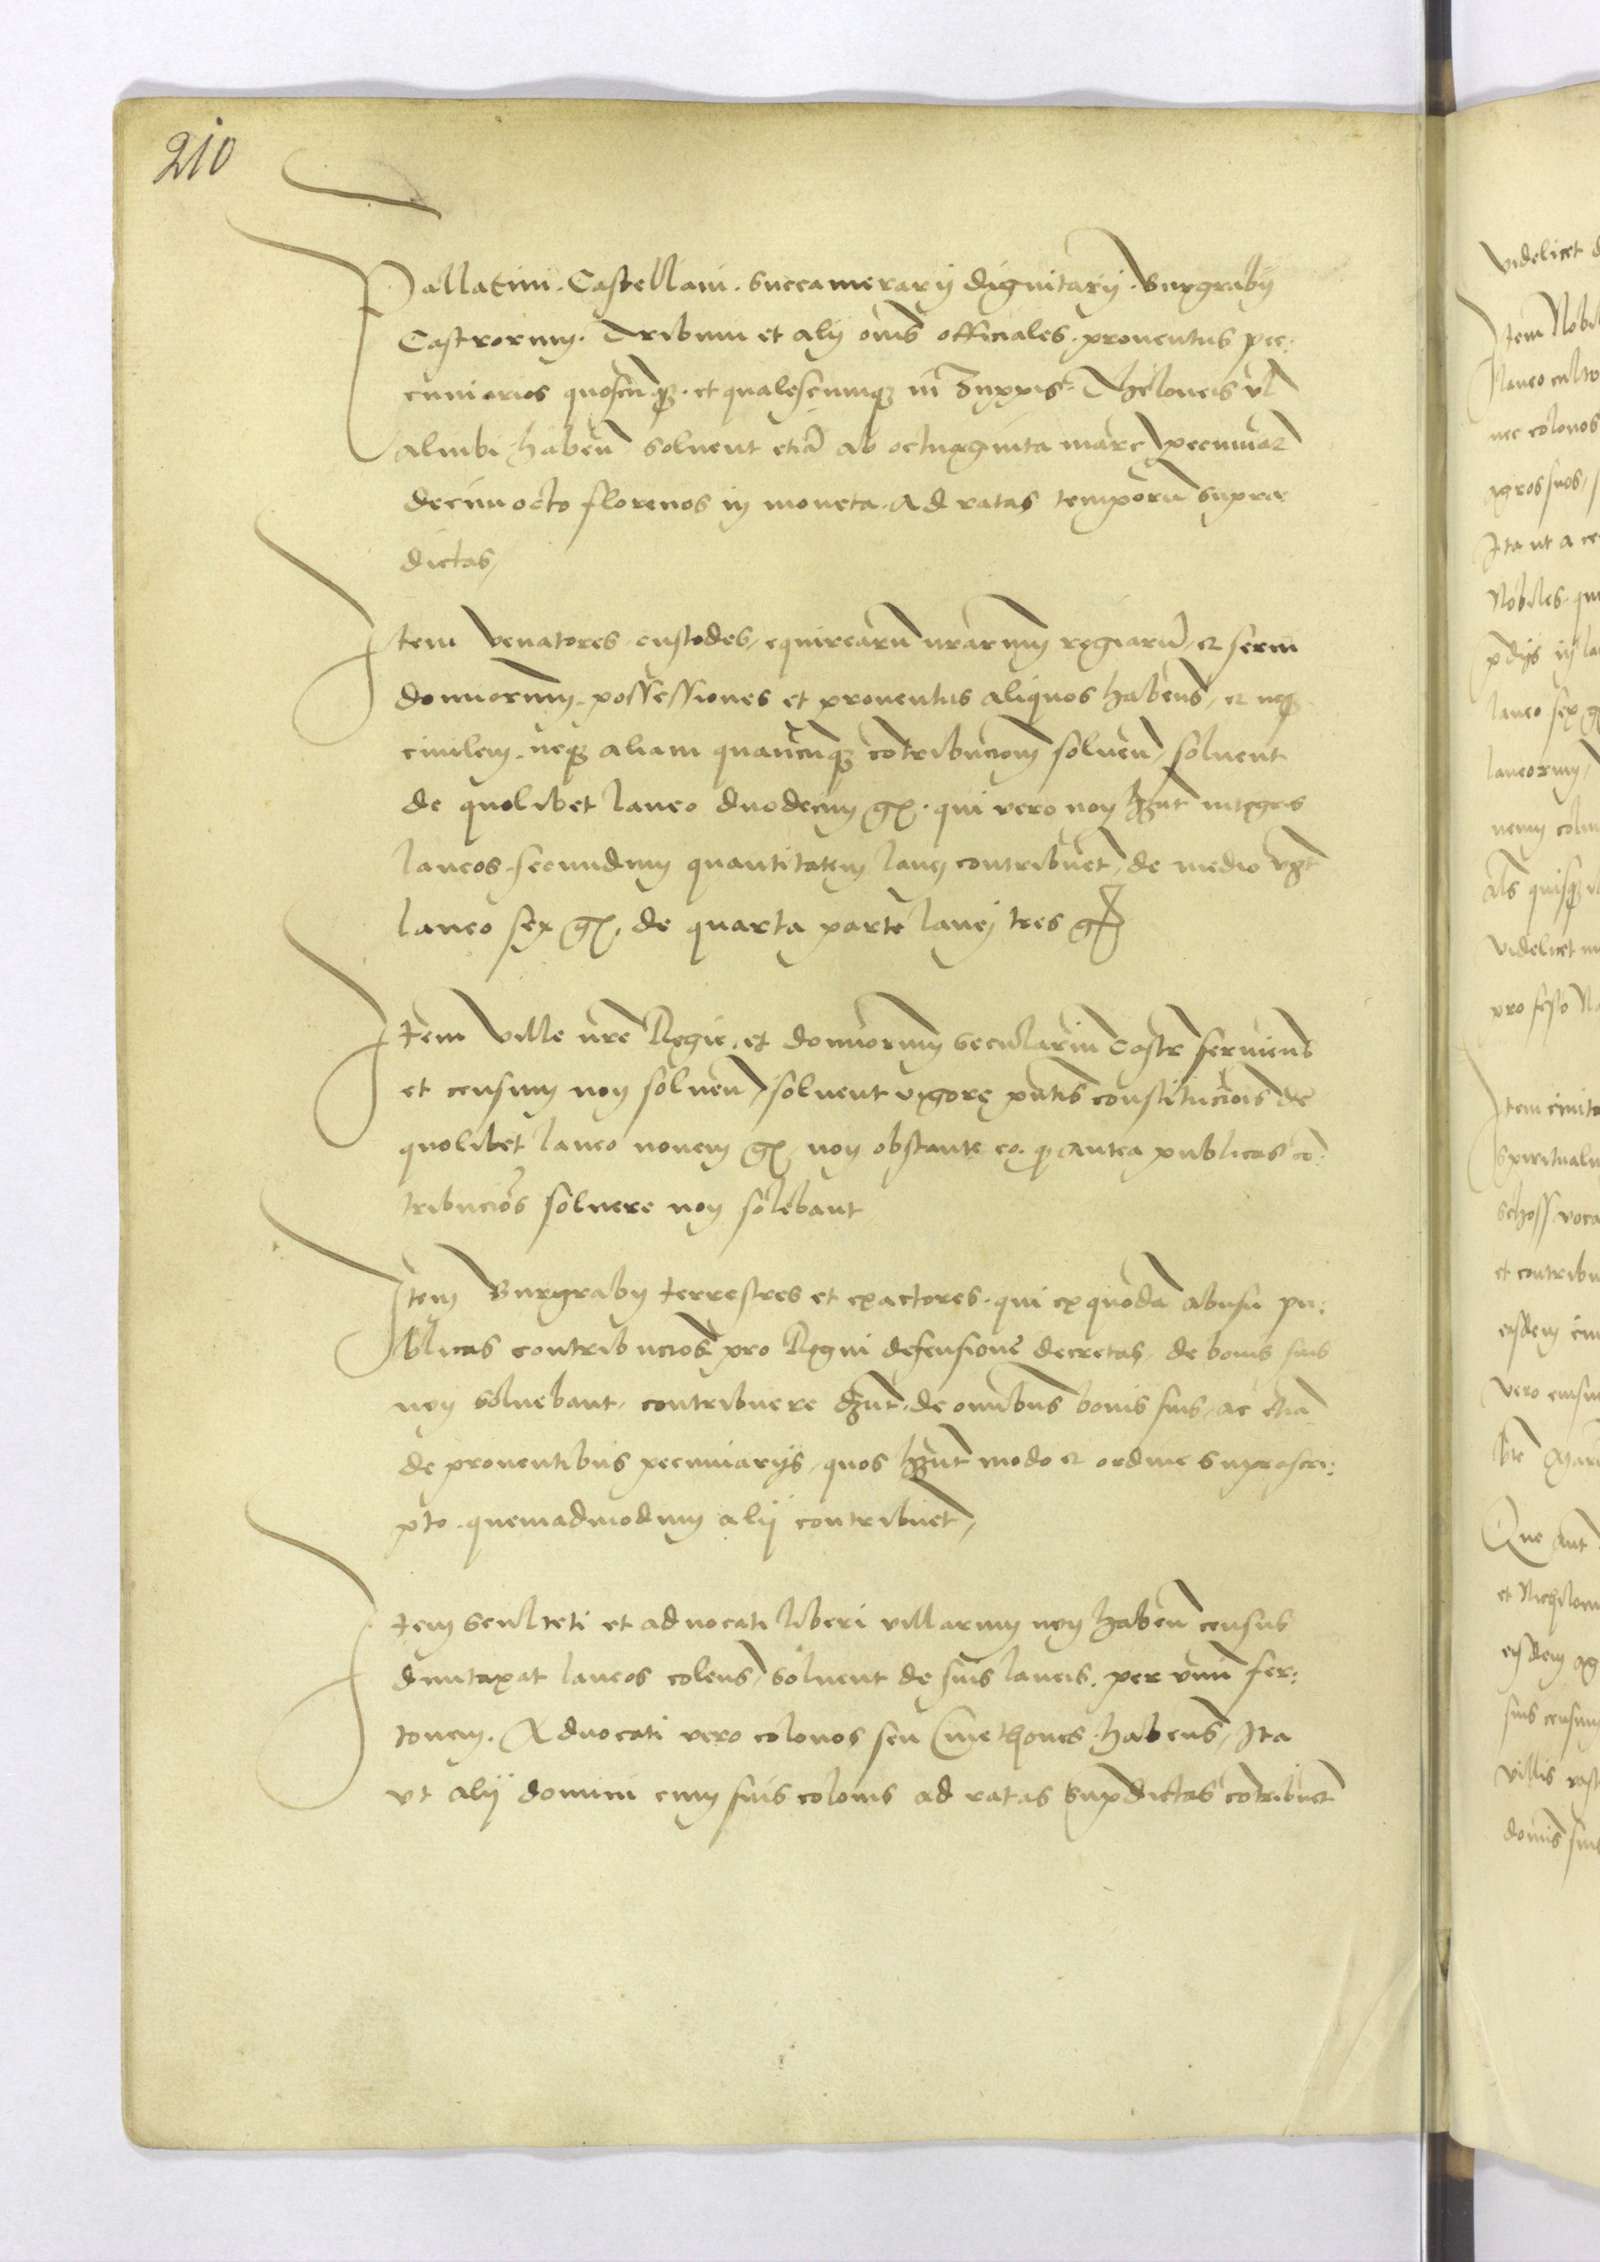 210
Pallatini. Castellani. Succamerarij dignitarij. Burgrabij
Castrorum. Tribuni et alij om̄s officiales. proventus pec:
cuniarios quoscūq̨. et qualescumq̨ in Zuppis. Theloneis vl̄
alinbi habeñ solvent etiā ab octuaginta marc̨ pecuniaꝝ
decimocto florenos in moneta. Ad ratas temporū supra
dictas,
Item venatores custodes, equirearū nrarum regiarū, et servi
dominorum. possessiones et proventus aliquos habeñs, et neq̨
civilem. neq̨ aliam quamcūq̨ cōtribuciōm solveñ, solvent
de quolibet laneo duodecim gr. qui vero non hñt integros
laneos. secundum quantitatem lanei contribuēt, de medio vḡt
laneo sex gr, de quarta parte lanei tres gr
Item Ville nr̄e Regie, et dominorum seculariū Castr̄ servieñs
et censum non solveñ, solvent vigore pn̄tis constitucōis de
quolibet laneo novem gr, non obstante eo. q̨ antea publicas cō:
tribucioēs solvere non solebant
Item Burgrabij terrestres et exactores. qui ex quodā abusu pu:
blicas contribucioēs pro Regni defensione decretas, de bonis suis
non solvebant, contribuere dn̄t. de omībus bonis suis, ac etiā
de proventibus pecuniarijs, quos hn̄t modo et ordine suprascri:
pto. quemadmodum alij contribuēt,
Item Sculteti et advocati liberi villarum non habeñ census
dumtaxat laneos coleñs, solvent de suis laneis. per unū fer:
tonem. Advocati vero colonos seu Cmethones. habeñs, Ita
vt alij domini cum suis colonis ad ratas supdictas cōtribuēt
videlicet
Item Nobil
laneo culto
nec colonos
agros suos,
Ita ut a ce
Nobiles. qui
laneo sex
laneorum,
videlicet
pro festo
Item civita
Spiritual
schoss voca
et contribu
eisdem
vero
Que aut
eisdem ag
suis censum
villis